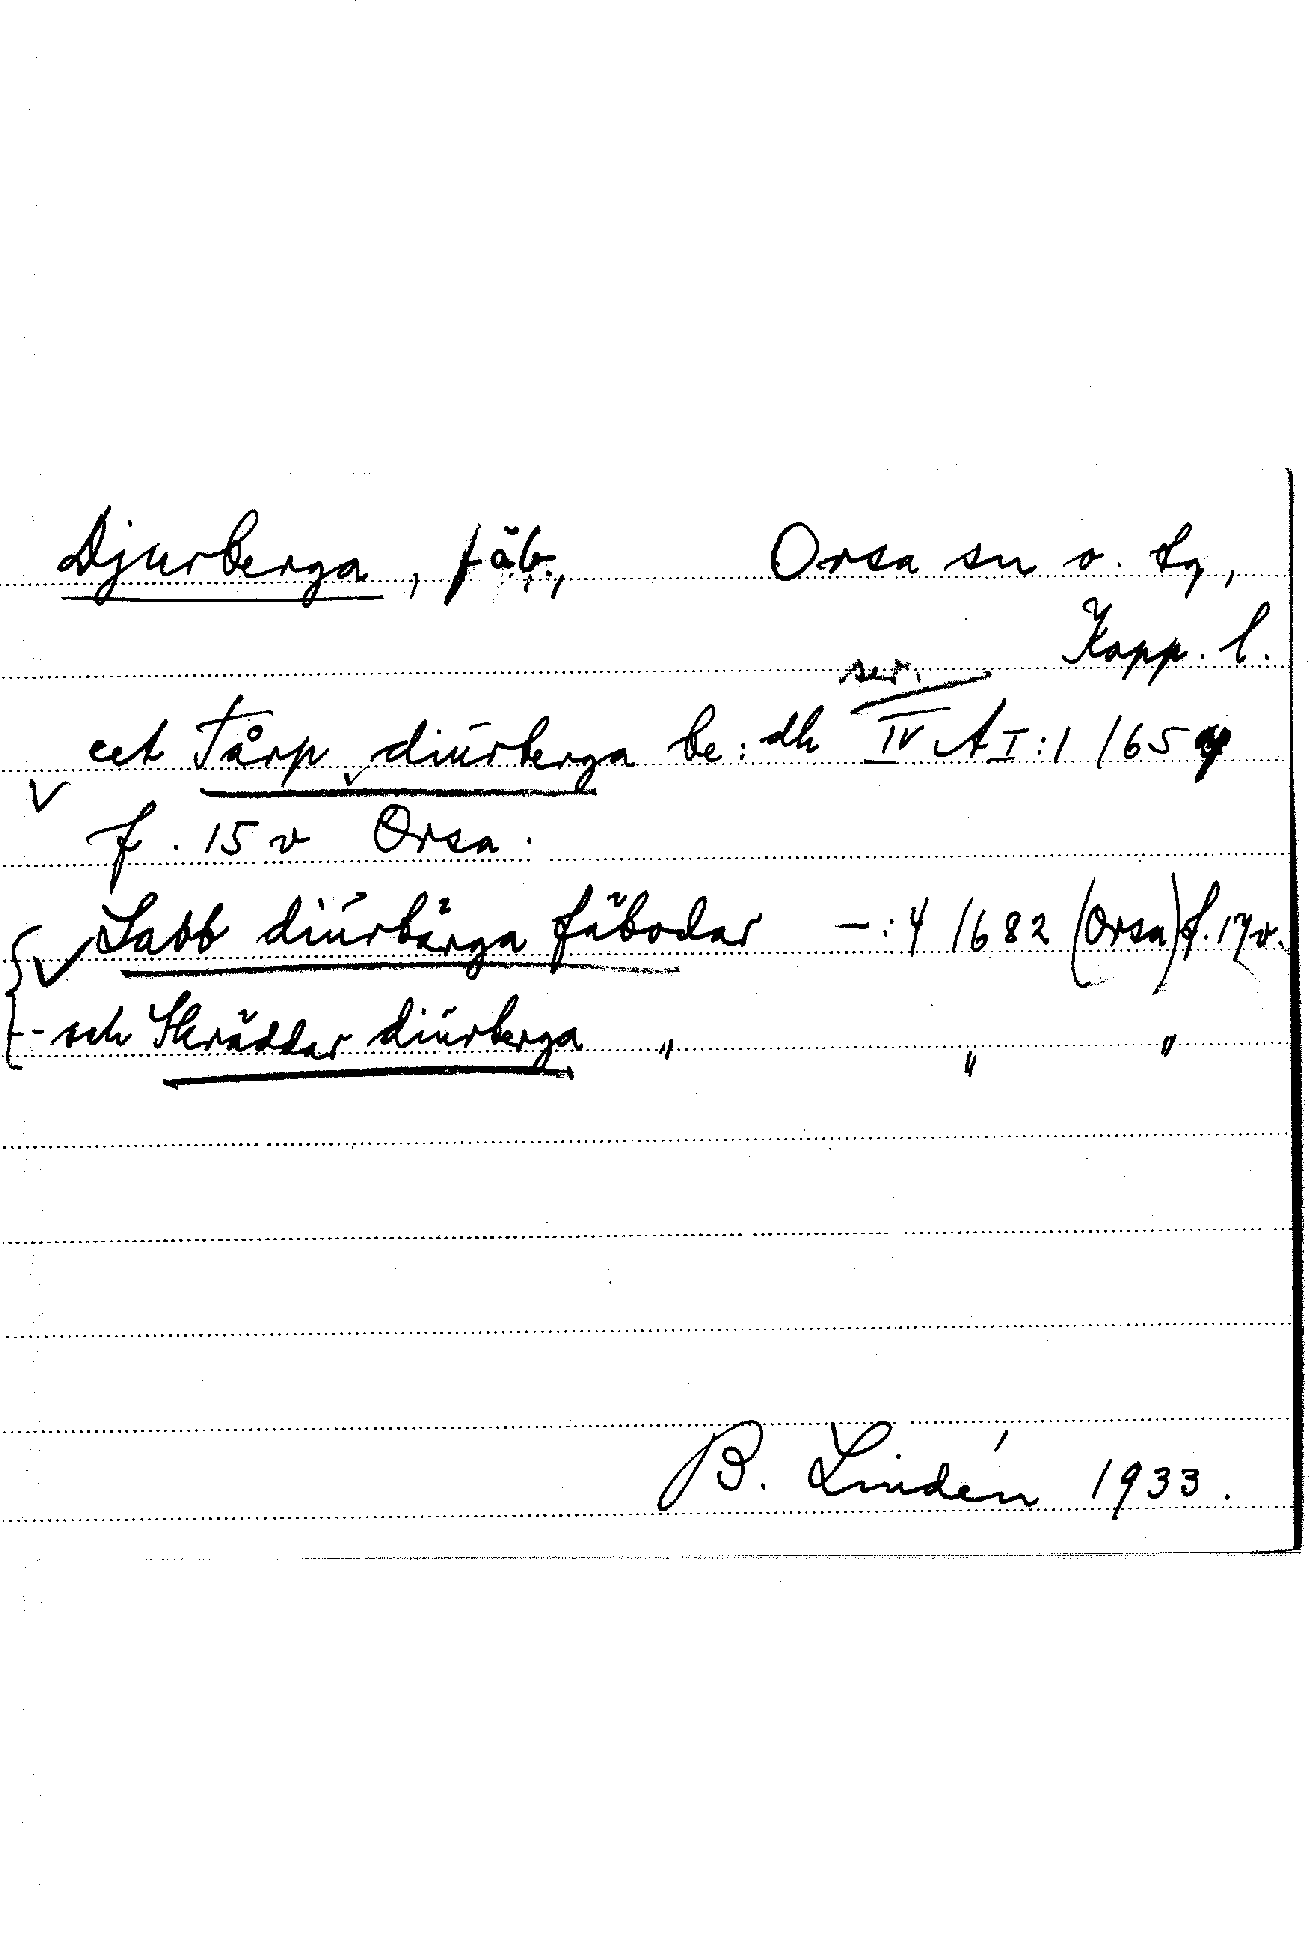 Djurberga, fäb., Orsa sn o. tg,
Kopp. l.
ser.
eet Tårp diurberga be:dh IV A I:1 165
f. 15 v Orsa.
Sabb diurbärga fäbodar —:4 1682 (Orsa) f. 17v.
-- och Skräddar diurberga " " "
B. Lindén 1933.